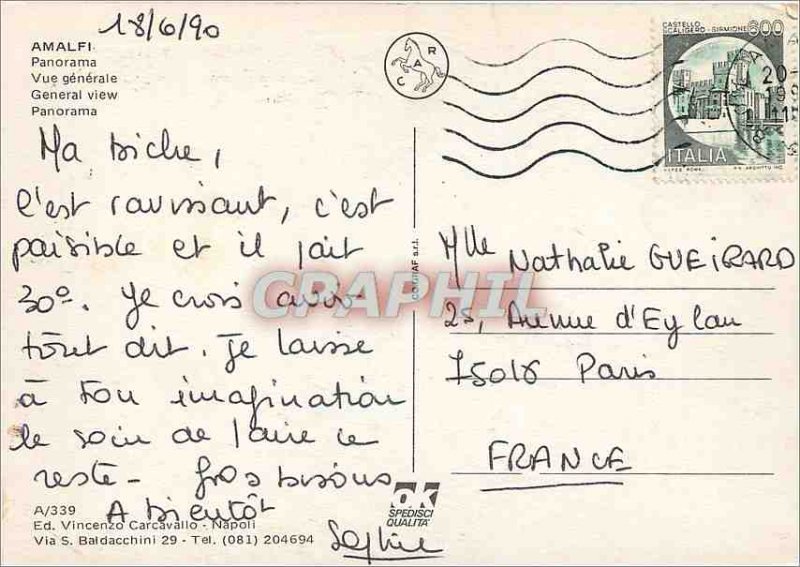 18/6/90
AMALFI
Panorama
Vue générale
General view
Panorama
Ma biche,
c'est ravissant, c'est
paisible et il fait
30º. Je crois avoir
tout dit. Je laisse
à ton imagination
le soin de faire le
reste - Gros bisous
A bientôt
Sophie
A/339
Ed. Vincenzo Carcavallo - Napoli
Via S. Baldacchini 29 - Tel. (081) 204694
CAR
COMGRAF s.r.l.
CARPHIL
ok
SPEDISCI
QUALITA'
CASTELLO
SCALIGERO - SIRMIONE
600
ITALIA
20
19
11
Mlle Nathalie GUEIRARD
25, Avenue d'Eylau
75016 Paris
FRANCE